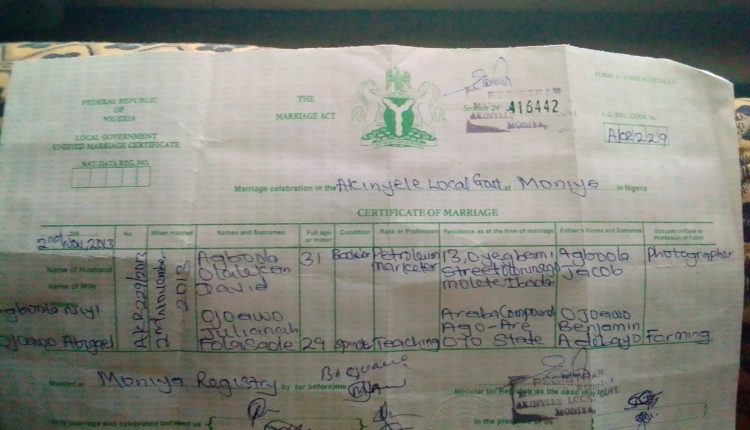 FORM E (FIRST SCHEDULE)
FEDERAL REPUBLIC
OF
NIGERIA
THE
MARRIAGE ACT
REGISTRAR
Section 24 416442
AKINYELE LOCAL
MONIYA,
L.G. REG. CODE No.
AKR229
LOCAL GOVERNMENT
UNIFIED MARRIAGE CERTIFICATE
NAT. DATA REG. NO.
Marriage celebration in the Akinyele Local Govt at Moniya in Nigeria
CERTIFICATE OF MARRIAGE
No When married Names and Surnames Full age or minor Condition Rank or Profession Residence as at the time of marriage Father's Names and Surnames Occupation Rank or Profession of Father
2nd Nov, 2013
AKR229/2013
2013
Name of Husband
Agboola
David
31
Bachelor
Petroleum
Marketer
13, Oyegbemi
Street
Molete Ibadan
Agboola
Jacob
Photographer
Name of Wife
Agboola Niyi
Ojoawo Abigael
Ojoawo
Julianah
Folasade
29
Spinster
Teaching
Araba Compound
Ago-Are
Oyo State
Ojoawo
Benjamin
Adebayo
Farming
Married at Moniya Registry by (or before) me
Minister (or Registrar) as the case may be
REGISTRAR
AKINYELE LOCAL
MONIYA,
This marriage was celebrated between us
In the presence of us